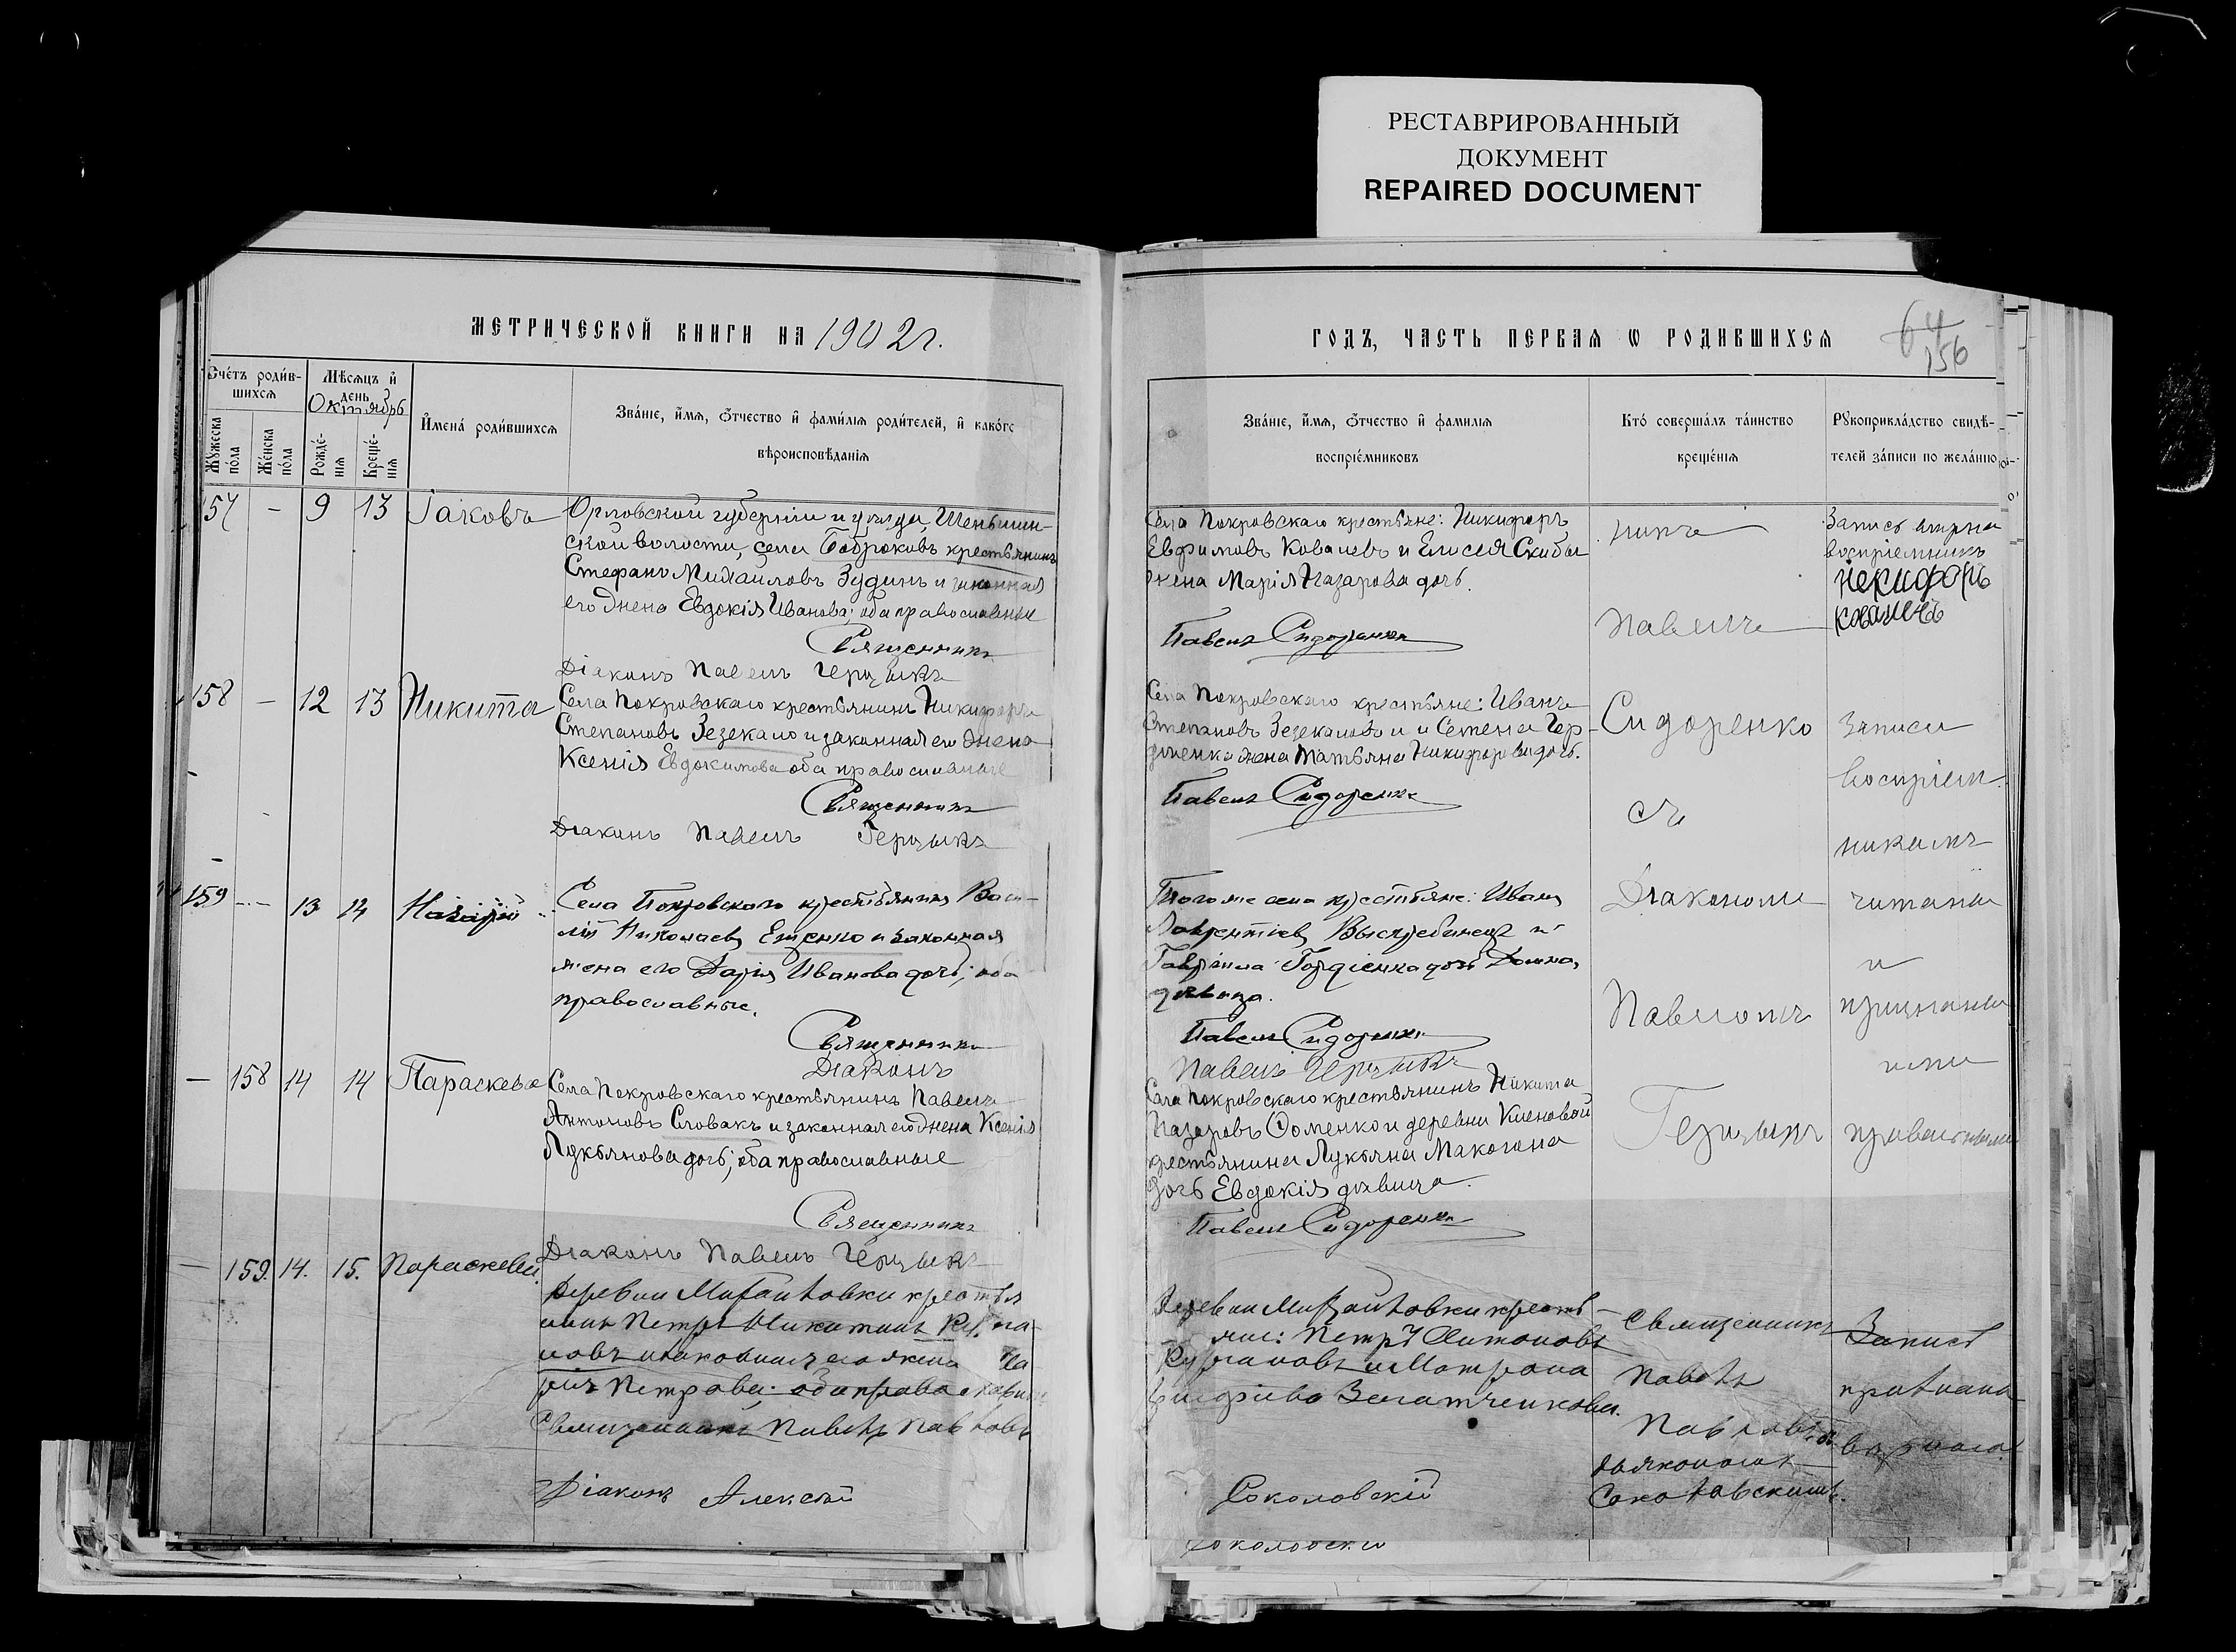 РЕСТАВРИРОВАННЫЙ
ДОКУМЕНТ
REPAIRED DOCUMENT
МЕТРИЧЕСКОЙ КНИГИ НА 1902 г.
ГОДЪ, ЧАСТЬ ПЕРВАЯ Ѡ РОДИВШИХСЯ
64
156
Счетъ родив-
шихся
Мѣсяцъ и
день
Октябрь
Имена родившихся
Званіе, имя, отчество и фамилія родителей, и какого
вѣроисповѣданія
Мужеска
пола
Женска
пола
Рожде-
нія
Креще-
нія
Званіе, имя, отчество и фамилія
воспріемниковъ
Кто совершалъ таинство
крещенія
Рукоприкладство свидѣ-
телей записи по желанію
157 - 9 13 Іаковъ
Орловской губерніи и уѣзда,
ской волости, села крестьянинъ
Стефанъ Михайловъ Зудинъ и законная
его жена Евдокія Иванова; оба православные
Священникъ
Діаконъ Павелъ
Села Покровскаго крестьяне: Никифоръ
Евфимовъ Ковалевъ и Елисея Скибы
жена Марія Назарова дочь.
Павелъ Сидоренко
Павелъ
Запись вѣрна
воспріемникъ
158 - 12 13 Никита
Села Покровскаго крестьянинъ Никифоръ
Степановъ Зезекало и законная его жена
Ксенія Евдокимова оба православные
Священникъ
Діаконъ Павелъ
Села Покровскаго крестьяне: Иванъ
Степановъ Зезекалово и Семена
жена Татьяна Никифорова дочь.
Павелъ Сидоренко
Сидоренко
съ
Записи
воспріем-
никамъ
159 - 13 14 Назарій
Села Покровскаго крестьянинъ Васи-
лій Николаевъ Ещенко и законная
жена его Дарія Иванова дочь; оба
православные.
Священникъ
Діаконъ
Того же села крестьяне: Иванъ
Лаврентіевъ и
Гавріила Гордіенка дочь Домна,
дѣвица.
Павелъ Сидоренко
Павелъ
Діакономъ
Павломъ
читаны
и
признаны
ими
правильными
- 158 14 14 Параскева
Села Покровскаго крестьянинъ Павелъ
Антоновъ Словакъ и законная его жена Ксенія
Лукьянова дочь; оба православные
Священникъ
Діаконъ Павелъ
Села Покровскаго крестьянинъ Никита
Назаровъ Фоменко и деревни Кленовой
крестьянина Лукьяна Макогона
дочь Евдокія дѣвица.
Павелъ Сидоренко
- 159. 14. 15. Параскева.
Деревни Михайловки крестья
нинъ Петръ Никитинъ
новъ и законная его жена
рія Петрова; оба православные
Священникъ Павелъ Павловъ
Діаконъ Алексѣй
Деревни Михайловки кресть-
яне: Петръ Антоновъ
и Матрона
Соколовскій
Священникъ
Павелъ
Павловъ съ
дьякономъ
Соколовскимъ.
Запись
признана
вѣрною
Соколовскій